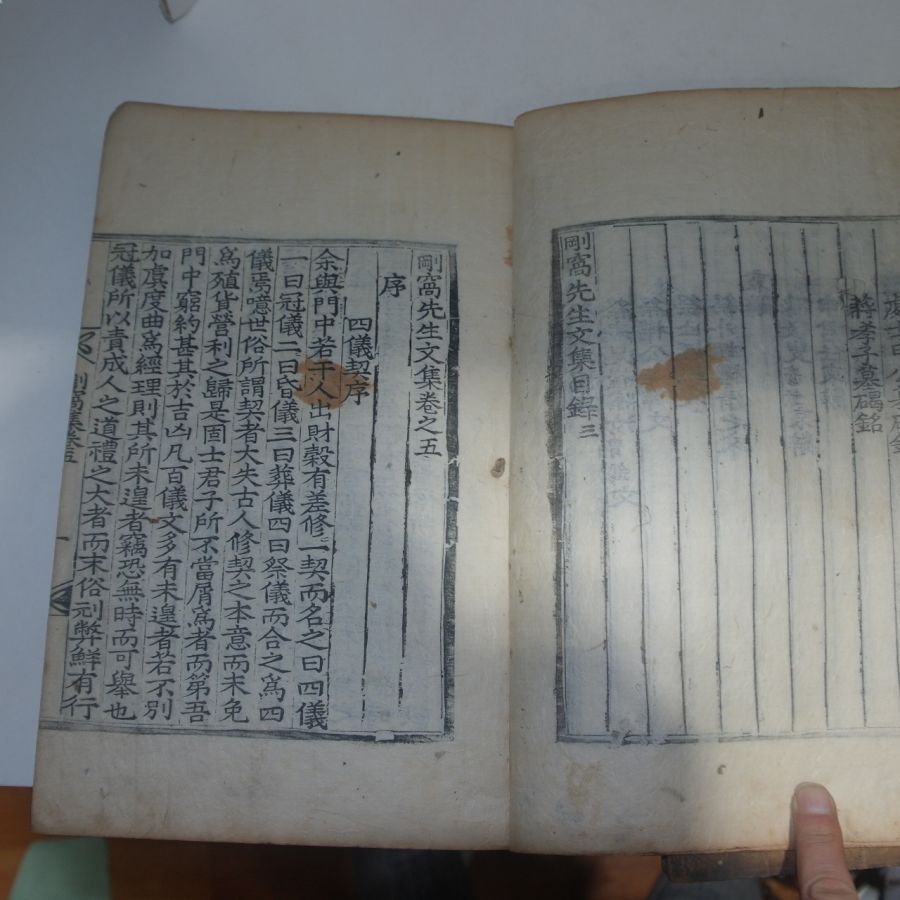 孝子墓碣銘
剛窩先生文集目錄三
剛窩先生文集卷之五
序
四儀契序
余與門中若干人出財穀有差修一契而名之曰四儀
一曰冠儀二曰昏儀三曰葬儀四曰祭儀而合之爲四
儀焉噫世俗所謂契者大失古人修契之本意而未免
爲殖貨營利之歸是固士君子所不當屑爲者而第吾
門中窮約甚其於吉凶凡百儀文多有未遑者若不別
加虞度曲爲經理則其所未遑者竊恐無時而可舉也
冠儀所以責成人之道禮之大者而末俗刓弊鮮有行
剛窩集卷五
一